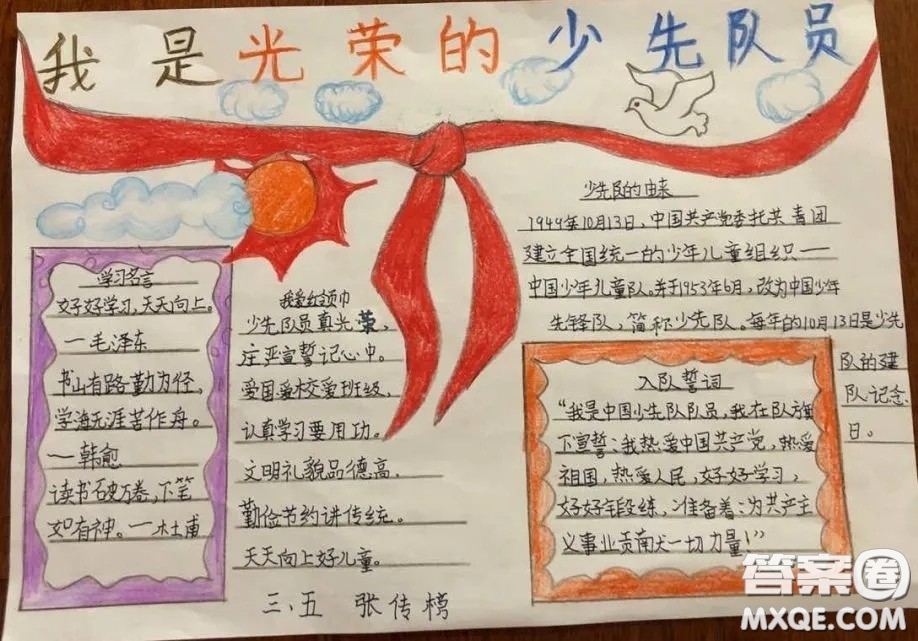 我是光荣的少先队员
学习名言
好好学习,天天向上。
一毛泽东
书山有路勤为径,
学海无涯苦作舟。
一韩愈
读书破万卷,下笔
如有神。一杜甫
我爱红领巾
少先队员真光荣,
庄严宣誓记心中。
爱国爱校爱班级,
认真学习要用功。
文明礼貌品德高,
勤俭节约讲传统。
天天向上好儿童。
三、五 张传
少先队的由来
1949年10月13日,中国共产党委托共青团
建立全国统一的少年儿童组织一
中国少年儿童队。并于1953年6月,改为中国少年
先锋队,简称少先队。每年的10月13日是少先
队的建
队记念
日。
入队誓词
“我是中国少先队队员,我在队旗
下宣誓:我热爱中国共产党,热爱
祖国,热爱人民,好好学习,
好好锻练,准备着:为共产主
义事业贡献一切力量!”
答案圈
MXQE.COM